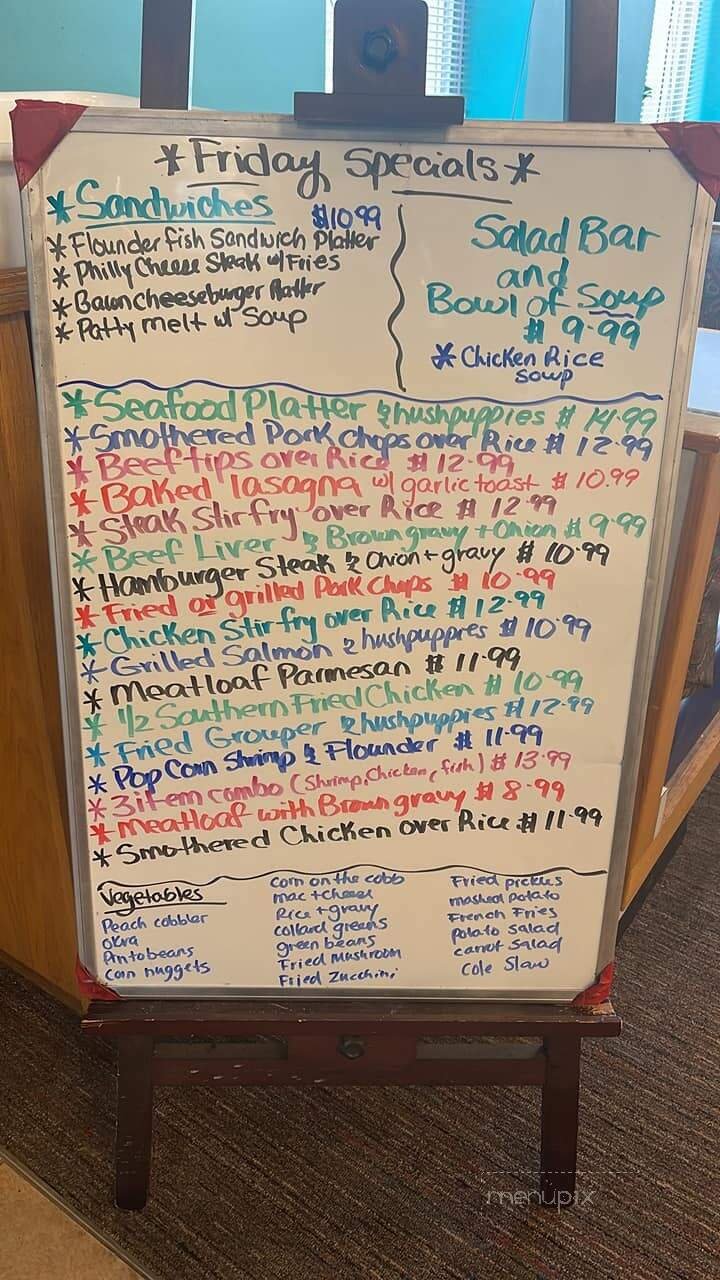 *Friday Specials*
*Sandwiches $10.99
*Flounder fish Sandwich Platter
*Philly Cheese Steak w/ Fries
*Bacon cheeseburger Platter
*Patty melt w/ Soup
Salad Bar
and
Bowl of Soup
$ 9.99
*Chicken Rice
soup
*Seafood Platter & hushpuppies $ 14.99
*Smothered Pork chops over Rice $ 12.99
*Beef tips over Rice $ 12.99
*Baked lasagna w/ garlic toast $ 10.99
*Steak Stir fry over Rice $ 12.99
*Beef Liver & Brown gravy + Onion $ 9.99
*Hamburger Steak & Onion + gravy $ 10.99
*Fried or grilled Pork Chops $ 10.99
*Chicken Stir fry over Rice $ 12.99
*Grilled Salmon & hushpuppies $ 10.99
*Meatloaf Parmesan $ 11.99
*1/2 Southern Fried Chicken $ 10.99
*Fried Grouper & hushpuppies $ 12.99
*Pop Corn Shrimp & Flounder $ 11.99
*3 item combo (Shrimp, Chicken, fish) $ 13.99
*Meatloaf with Brown gravy $ 8.99
*Smothered Chicken over Rice $ 11.99
Vegetables
Peach cobbler
okra
Pinto beans
Corn nuggets
corn on the cobb
mac + cheese
Rice + gravy
collard greens
green beans
Fried Mushroom
Fried Zucchini
Fried pickles
mashed potato
French Fries
potato salad
carrot salad
Cole Slaw
menupix